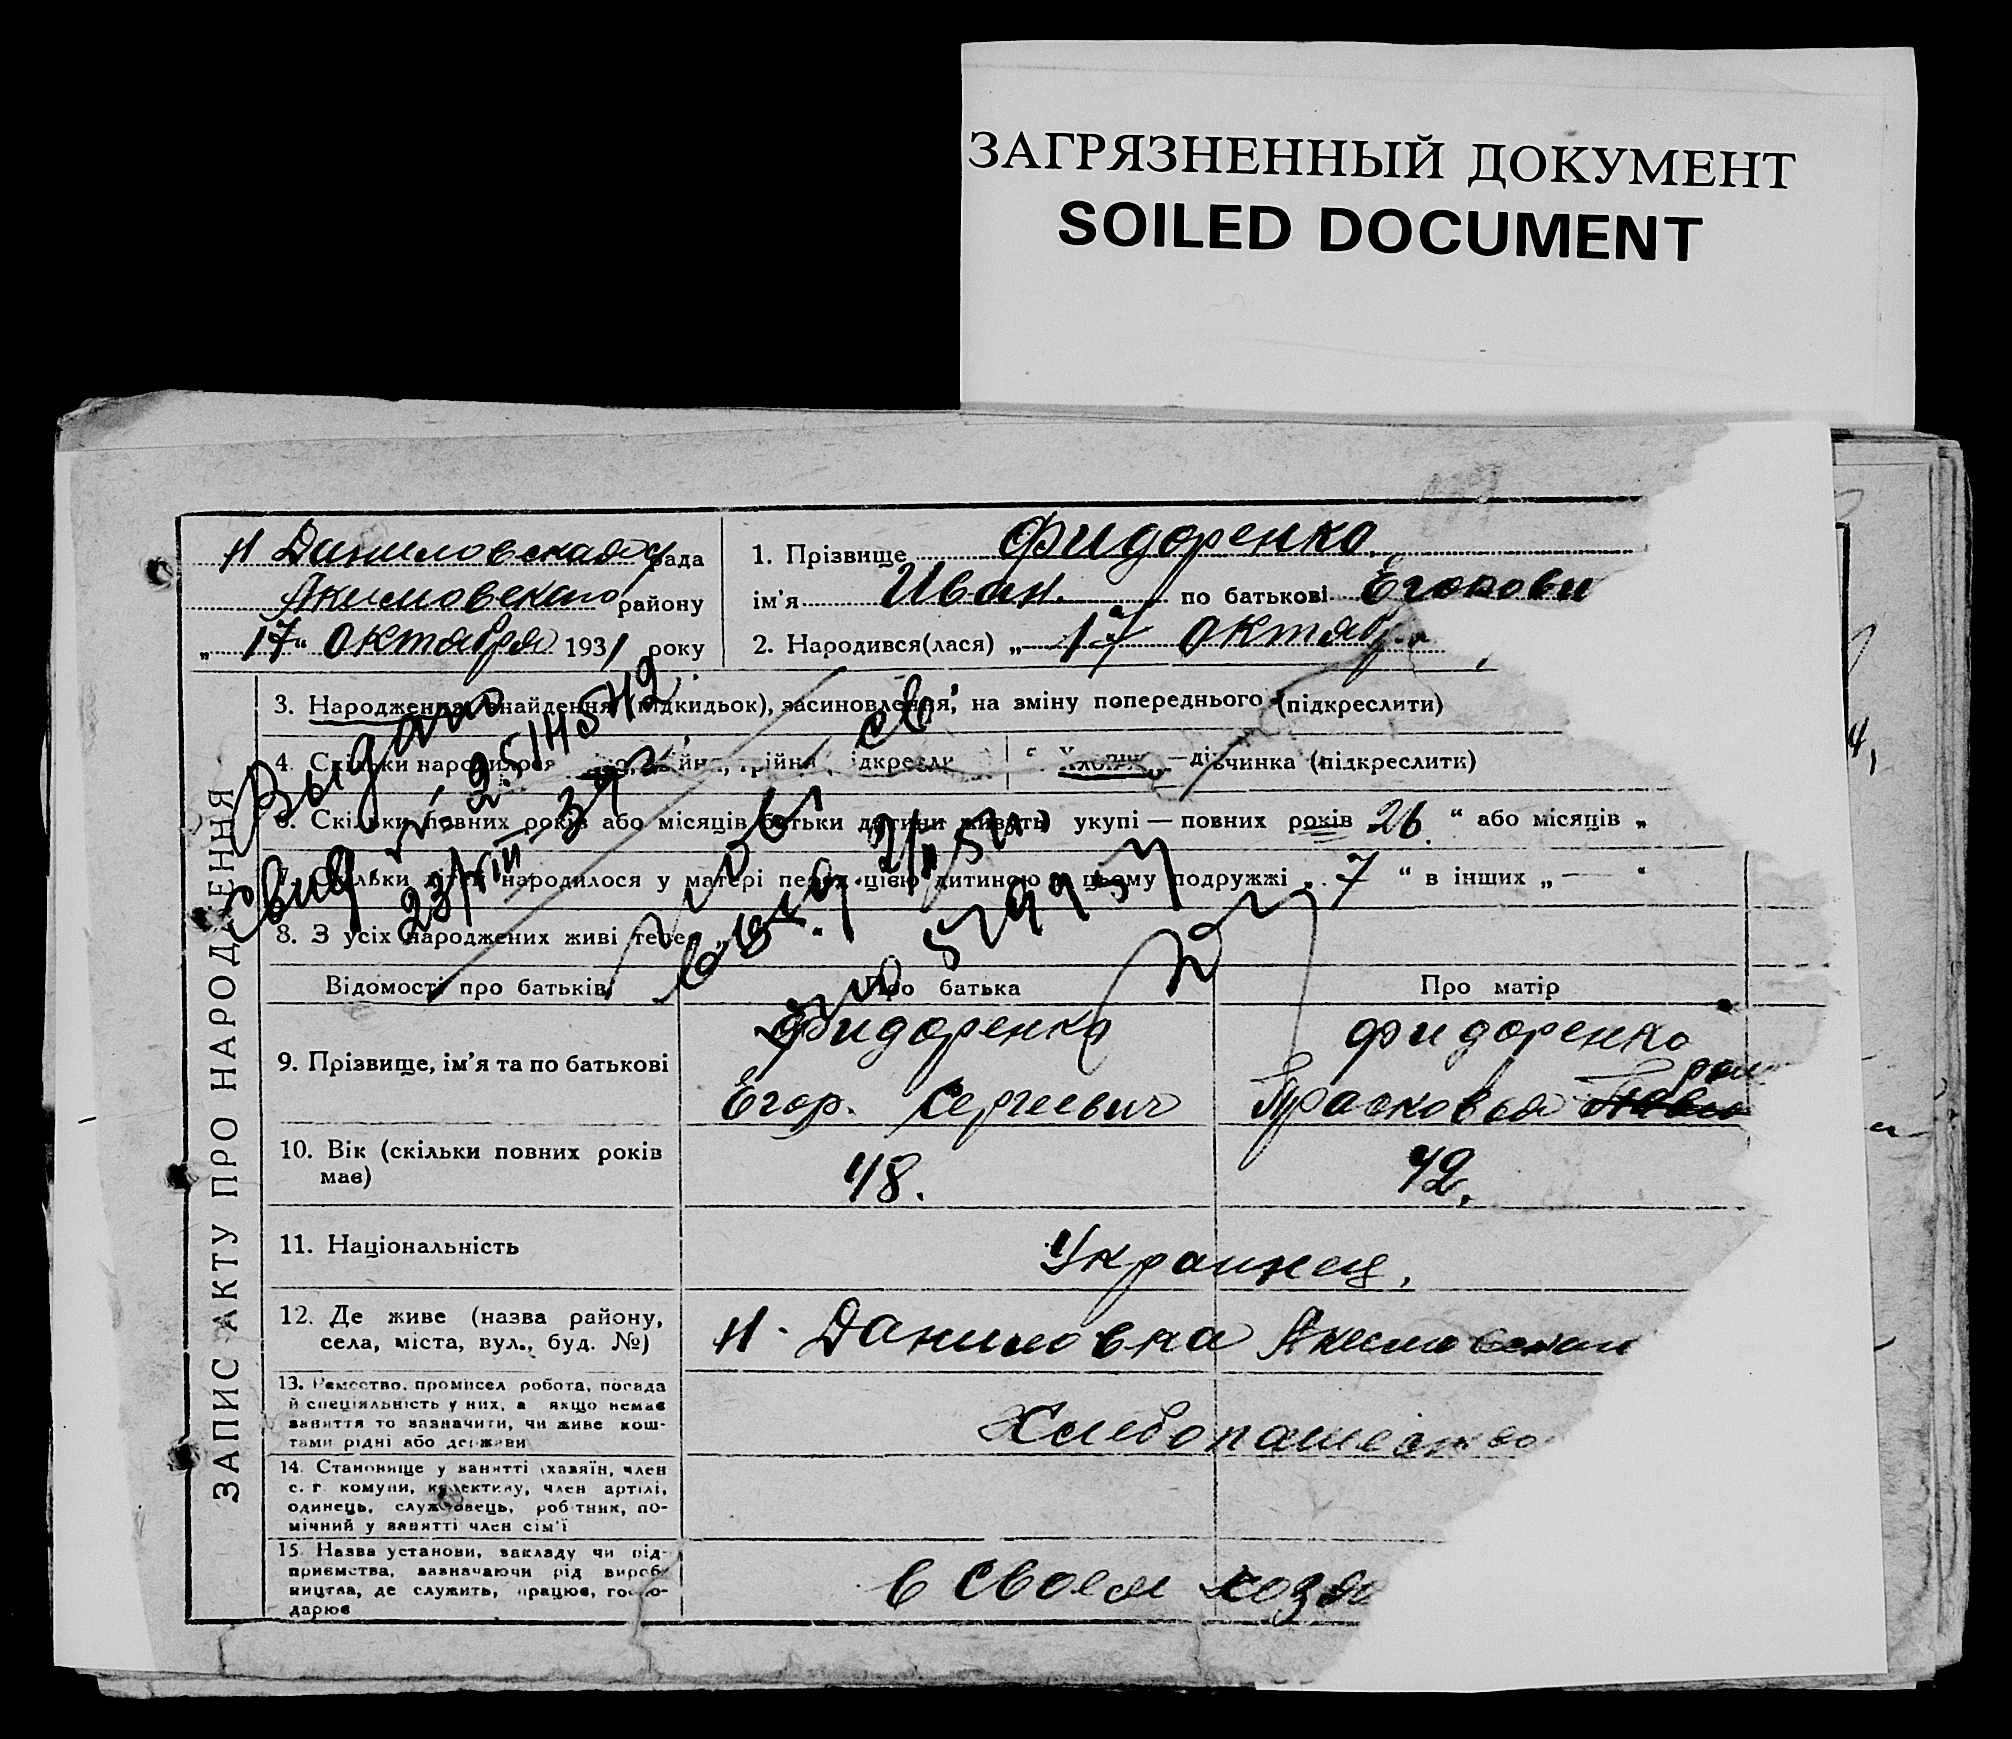 ЗАГРЯЗНЕННЫЙ ДОКУМЕНТ
SOILED DOCUMENT
Н Даниловская с/рада
Якимовского району
„ 17 “ октября 1931 року
1. Прізвище Фидоренко
ім'я Иван по батькові Егорови
2. Народився(лася) „ 17 октября
ЗАПИС АКТУ ПРО НАРОДЖЕННЯ
3. Народження, знайдення (підкидьок), засиновлення, на зміну попереднього (підкреслити)
4. Скільки народилося двійня, трійня підкресли
Хлопчик — дівчинка (підкреслити)
6. Скільки повних років або місяців батьки дитини живуть укупі — повних років 26 “ або місяців „
7. Скільки дітей народилося у матері цією дитиною в цьому подружжі „ 7 “ в інших „ — “
8. З усіх народжених живі тепер
Выдано
свид. 2514542
23/VIII 39
579957
Відомості про батьків
Про батька
Про матір
9. Прізвище, ім'я та по батькові
Фидоренко
Егор. Сергеевич
Фидоренко
Прасковья
10. Вік (скільки повних років має)
48.
42.
11. Національність
Украинец.
12. Де живе (назва району, села, міста, вул., буд. №)
Н - Даниловка Якимовскои
13. Ремество, промисел робота, посада
й спеціяльність у них, а якщо немає
заняття то зазначити, чи живе кош-
тами рідні або держави
Хлебопашество
14. Становище у занятті (хазяїн, член
с. г. комуни, колективу, член артілі,
одинець, службовець, робітник, по-
мічний у занятті член сім'ї
15. Назва установи, закладу чи під-
приємства, зазначаючи рід вироб-
ництва, де служить, працює, госпо-
дарює
в своем хозя